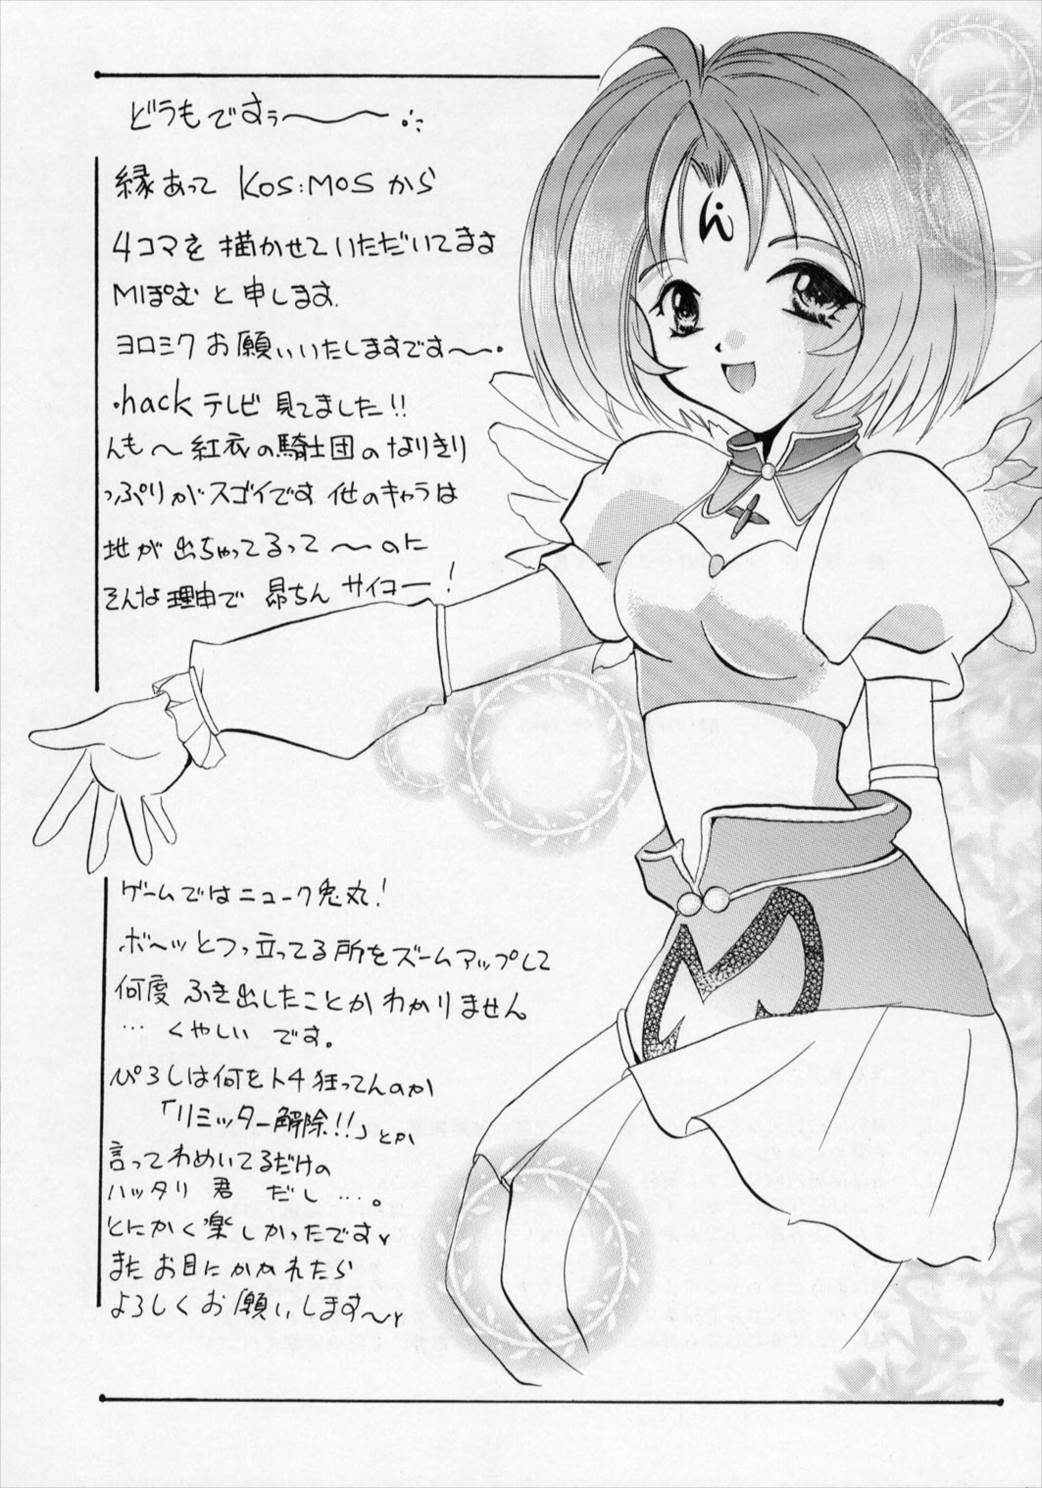 どうもですぅ〜〜
縁あって KOS:MOSから
4コマを描かせていただいてます
M1ぽむと申します.
ヨロミクお願いいたしますです〜・
.hack テレビ見てました!!
んも〜紅衣の騎士団のなりきり
っぷりがスゴイです 他のキャラは
地が出ちゃってるって〜のに
そんな理由で 昴ちん サイコー!
ゲームではニューク兎丸!
ボ〜ッとつっ立ってる所をズームアップして
何度ふき出したことかわかりません
… くやしいです。
ぴろしは何をトチ狂ってんのか
「リミッター解除!!」とか
言ってわめいてるだけの
ハッタリ君だし…。
とにかく楽しかったです
またお目にかかれたら
よろしくお願いします〜